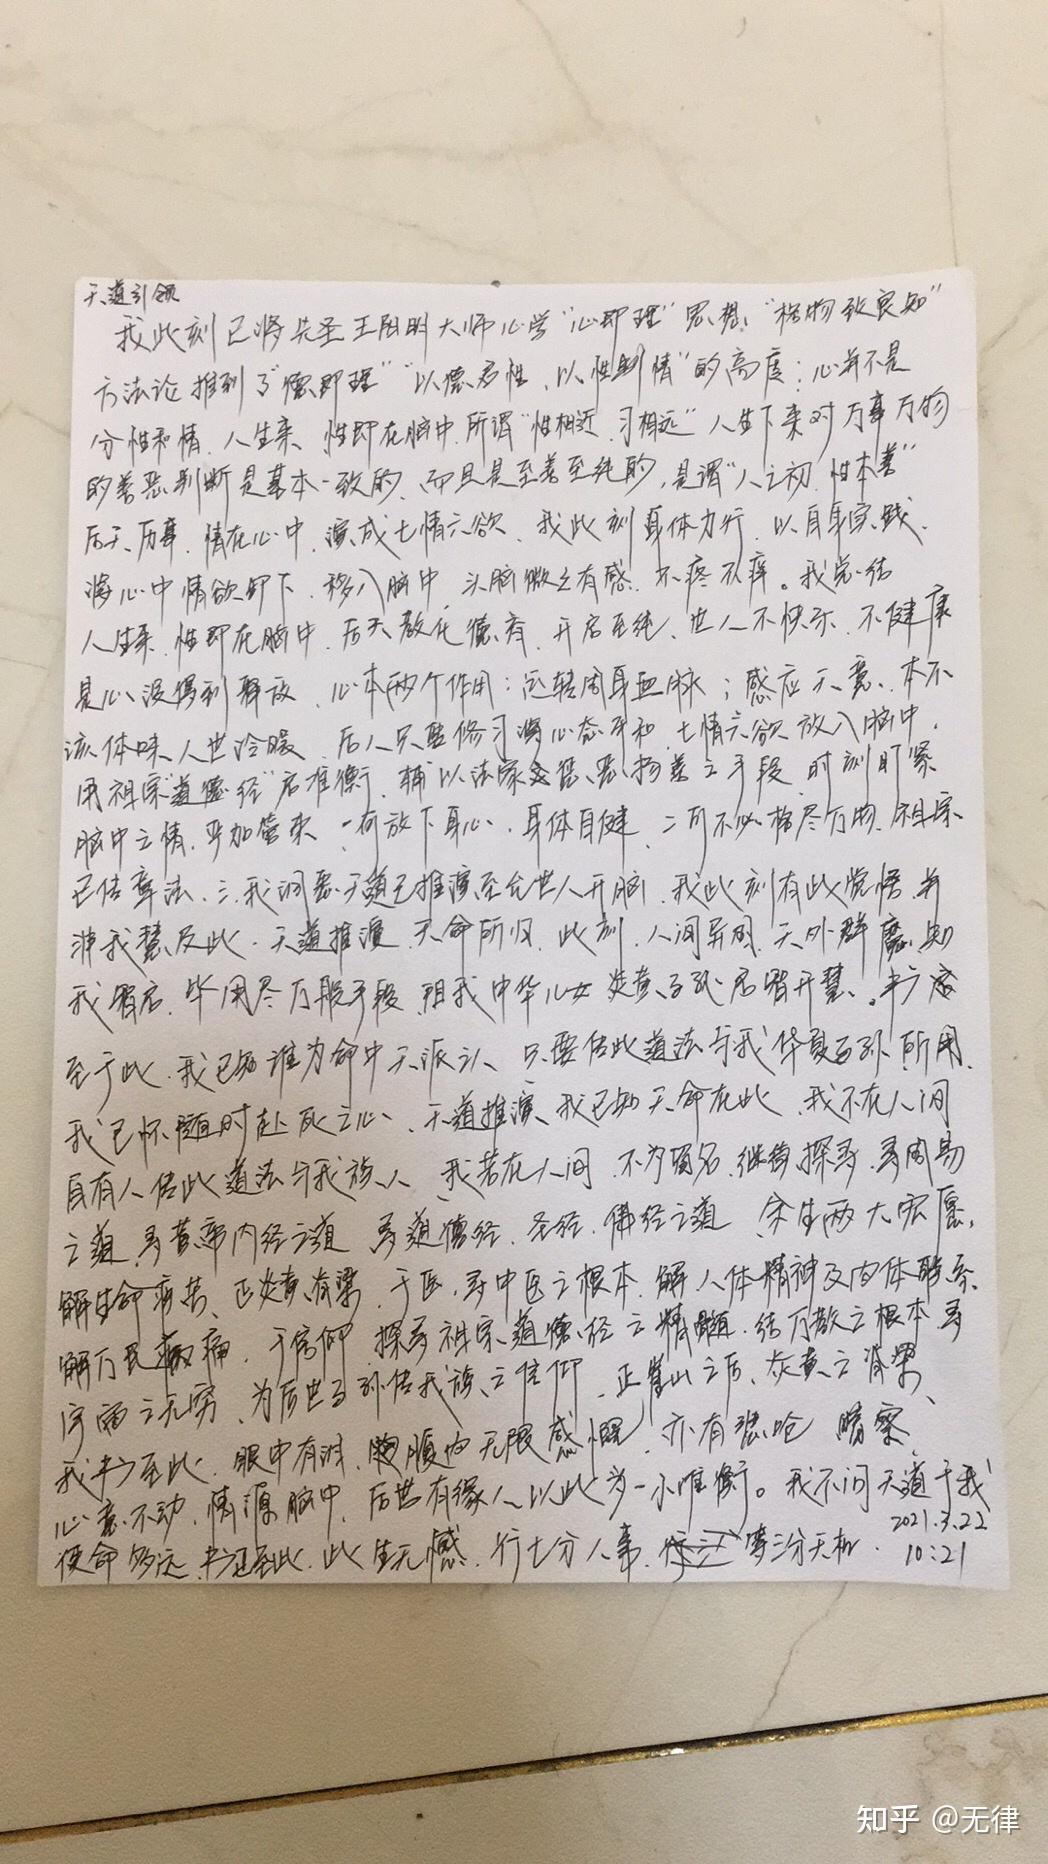 天道引领
我此刻已将先圣王阳明大师心学“心即理”思想，“格物致良知”
方法论推到了“德即理”“以德启性，以性制情”的高度：心并不是
分性和情，人生来，性即在脑中，所谓“性相近，习相远”人生下来对万事万物
的善恶判断是基本一致的，而且是至善至纯的，是谓“人之初，性本善”
后天历事，情在心中，演成七情六欲，我此刻身体力行，以自身实践，
将心中情欲卸下，移入脑中，头脑微微有感，不疼不痒。我总结
人生来，性即在脑中，后天教化德育，开启至纯，世人不快乐，不健康
是心没得到释放，心本两个作用：运转周身血脉；感应天意，本不
该体味人世冷暖，后人只要修习将心态平和，七情六欲放入脑中，
用祖宗“道德经”启准衡，辅以法家惩恶扬善之手段，时刻盯紧
脑中之情，严加管束，一可放下身心，身体自健，二可不必格尽万物，祖宗
已传章法，三，我洞悉天道已推演至允世人开脑，我此刻有此觉悟，并
非我慧及此，天道推演，天命所归，此刻，人间异国，天外群魔，知
我智启，毕用尽万般手段，阻我中华儿女，炎黄子孙，启智开慧。书广
至于此，我已知谁为命中天派之人，只要传此道法与我华夏子孙所用，
我已怀随时赴死之心，天道推演，我已知天命在此，我不在人间
自有人传此道法与我族人，我若在人间，不为留名，继续探寻，寻周易
之道，寻黄帝内经之道，寻道德经，圣经，佛经之道，余生两大宏愿，
解生命病苦，正炎黄脊梁，于医，寻中医之根本，解人体精神及肉体联系，
解万民病痛，于信仰，探寻祖宗道德经之精髓，结万教之根本，寻
宇宙之无穷，为后世子孙传我族之信仰，正崖山之后，炎黄之脊梁，
我书至此，眼中有泪，胸腹内无限感慨，亦有悲呛，瞬察，
心意不动，情源脑中，后世有缘人以此为一小准衡。我不问天道于我
使命多远，书迹至此，此生无憾，行七分人事，寻三分天机．
2021.3.22
10:21
知乎 @无律